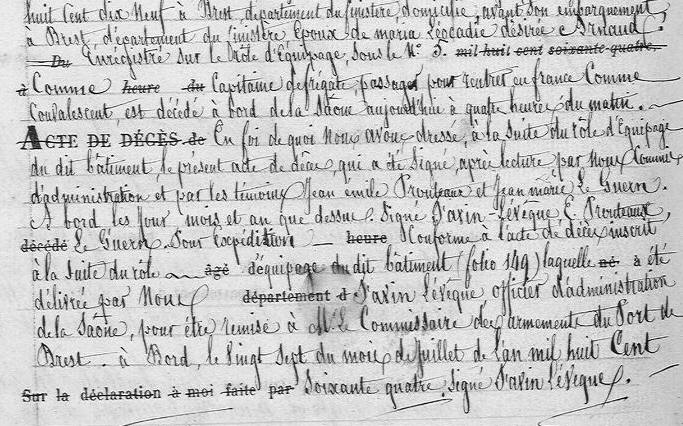 huit Cent dix Neuf à Brest, département du finistère domicilié, avant son embarquement,
à Brest, département du finistère Époux de maria Léocadie désirée Arnaud.
Du Enregistré sur le Rôle d'Équipage, sous le N° 3. mil huit cent soixante-quatre.
à Comme heure du Capitaine de frégate, passager pour rentrer en france Comme
Convalescent, est décédé à bord de la Saône aujourd'hui à quatre heures du matin.
ACTE DE DÉCÈS de En foi de quoi Nous avons dressé, à la suite du rôle d'Équipage
du dit bâtiment le présent acte de décès, qui a été signé, après lecture par Nous Commis
d'administration et par les témoins Jean emile Prouteaux et Jean marie Le Guern.
A bord les Jour mois et an que dessus. Signé Savin-Lévêque, E. Prouteaux,
décédé Le Guern. Pour Expédition — heure Conforme à l'acte de décès inscrit
à la Suite du rôle — âgé d'équipage du dit bâtiment (folio 149) laquelle né à a été
délivrée par Nous département d Savin Lévêque officier d'administration
de la Saône, pour être remise à Mr. le Commissaire des armements du Port de
Brest. à Bord, le Vingt Sept du mois de Juillet de l'an mil huit Cent
Sur la déclaration à moi faite par Soixante quatre, signé Savin Lévêque.